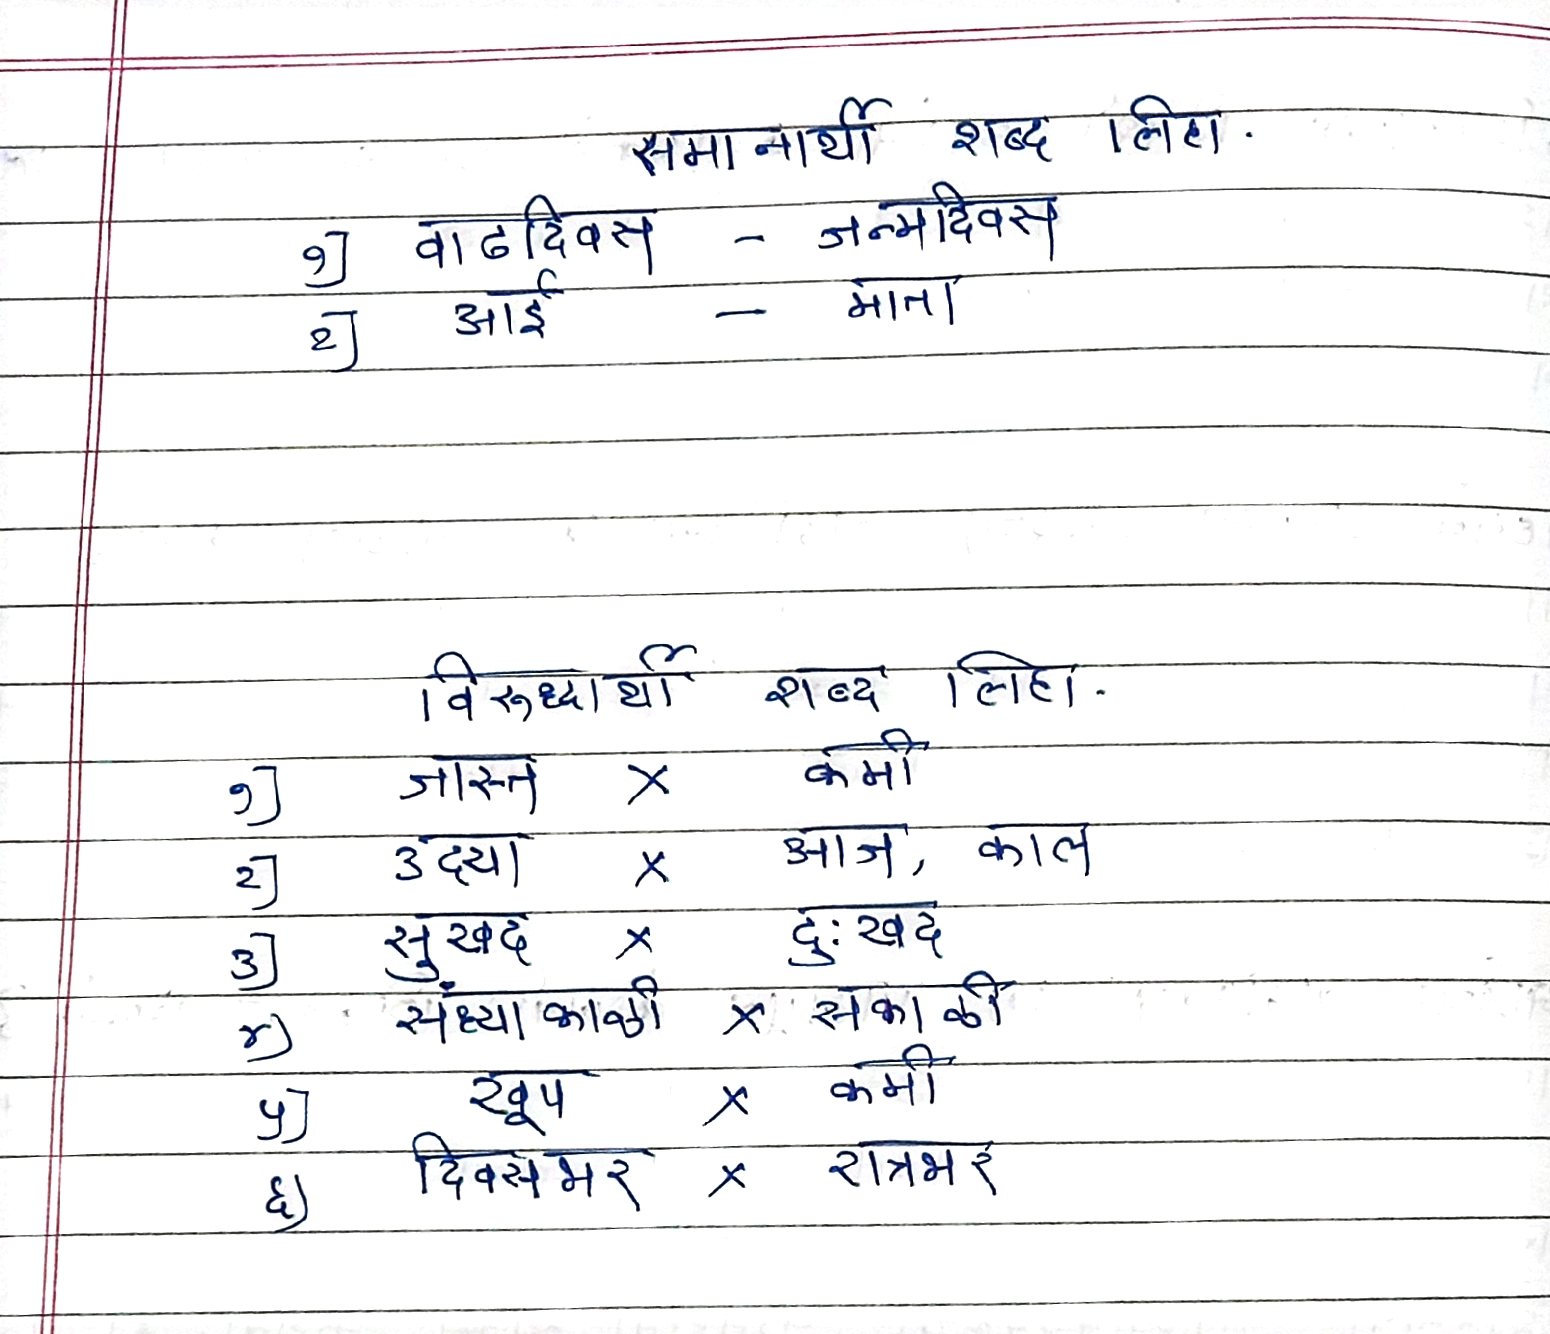 समानार्थी शब्द लिहा.
१] वाढदिवस - जन्मदिवस
२] आई - माता
विरुध्दार्थी शब्द लिहा.
१] जास्त × कमी
२] उद्या × आज, काल
३] सुखद × दुःखद
४) संध्याकाळी × सकाळी
५] खूप × कमी
६) दिवसभर × रात्रभर